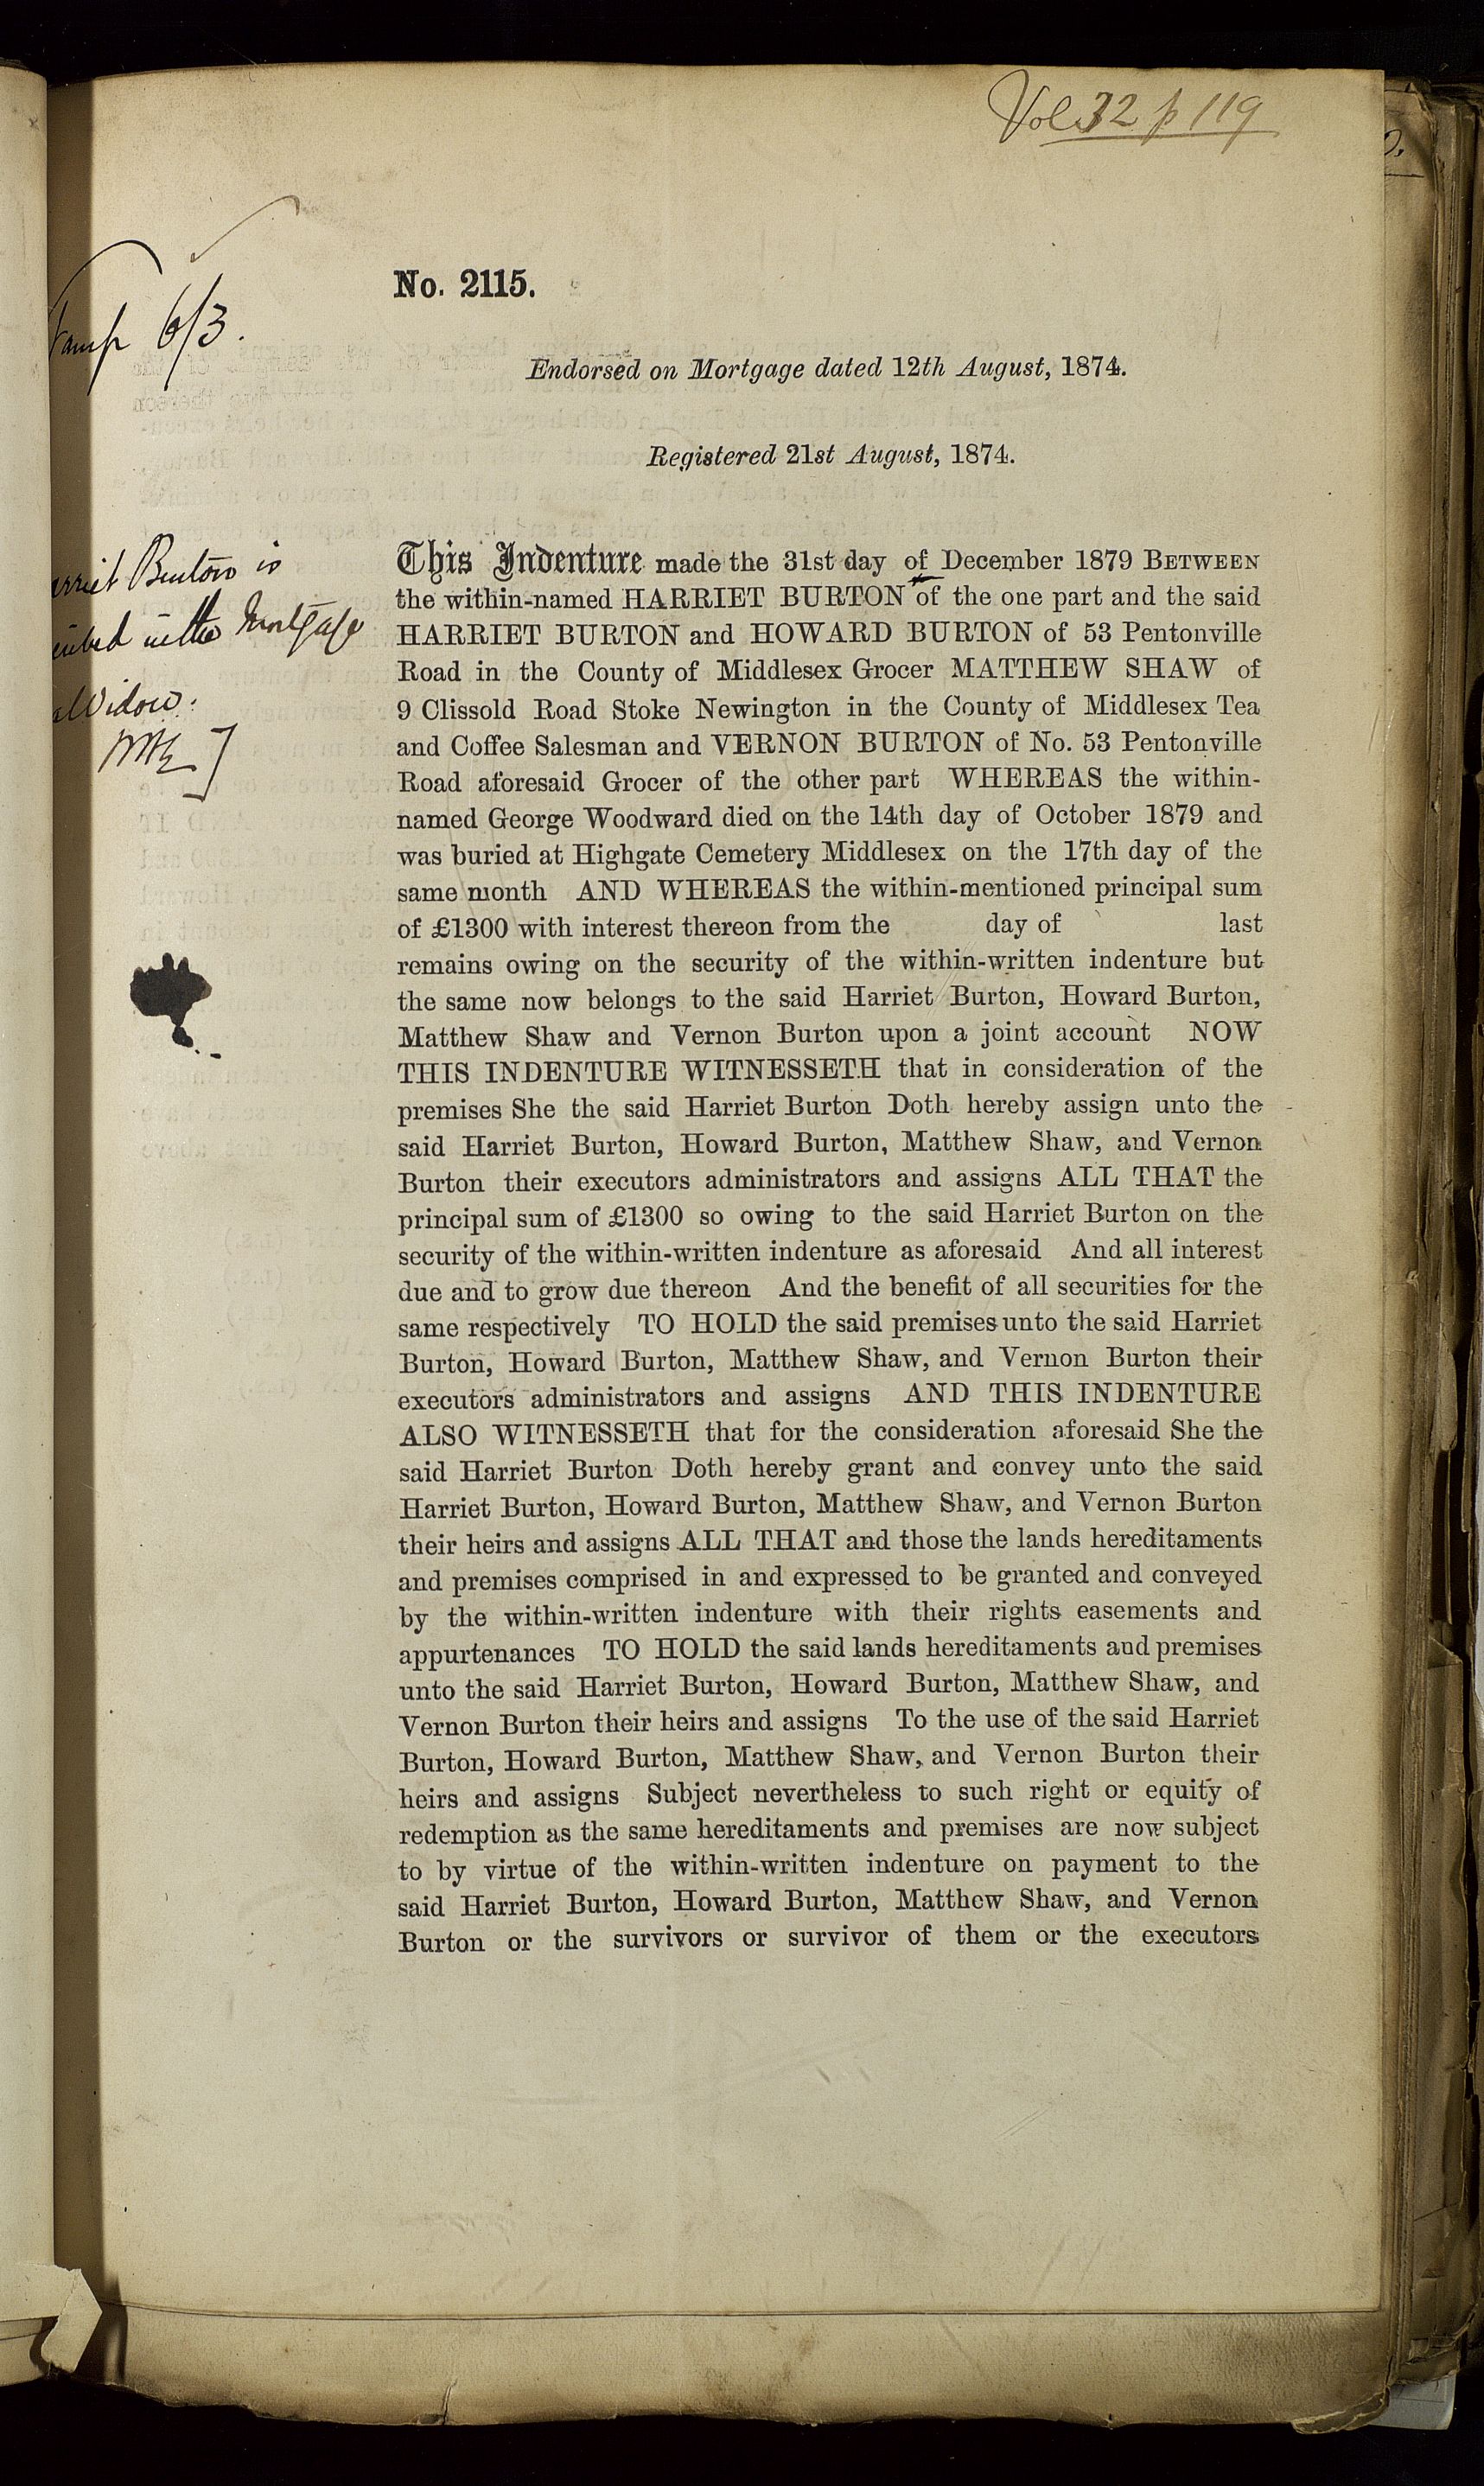 Vol 32 p 119
6/3.
No. 2115.
Endorsed on Mortgage dated 12th August, 1874.
Registered 21st August, 1874.
Burton is
in the Mortgage
a Widow.
This Indenture made the 31st day of December 1879 BETWEEN
the within-named HARRIET BURTON of the one part and the said
HARRIET BURTON and HOWARD BURTON of 53 Pentonville
Road in the County of Middlesex Grocer MATTHEW SHAW of
9 Clissold Road Stoke Newington in the County of Middlesex Tea
and Coffee Salesman and VERNON BURTON of No. 53 Pentonville
Road aforesaid Grocer of the other part WHEREAS the within-
named George Woodward died on the 14th day of October 1879 and
was buried at Highgate Cemetery Middlesex on the 17th day of the
same month AND WHEREAS the within-mentioned principal sum
of £1300 with interest thereon from the day of last
remains owing on the security of the within-written indenture but
the same now belongs to the said Harriet Burton, Howard Burton,
Matthew Shaw and Vernon Burton upon a joint account NOW
THIS INDENTURE WITNESSETH that in consideration of the
premises She the said Harriet Burton Doth hereby assign unto the
said Harriet Burton, Howard Burton, Matthew Shaw, and Vernon
Burton their executors administrators and assigns ALL THAT the
principal sum of £1300 so owing to the said Harriet Burton on the
security of the within-written indenture as aforesaid And all interest
due and to grow due thereon And the benefit of all securities for the
same respectively TO HOLD the said premises unto the said Harriet
Burton, Howard Burton, Matthew Shaw, and Vernon Burton their
executors administrators and assigns AND THIS INDENTURE
ALSO WITNESSETH that for the consideration aforesaid She the
said Harriet Burton Doth hereby grant and convey unto the said
Harriet Burton, Howard Burton, Matthew Shaw, and Vernon Burton
their heirs and assigns ALL THAT and those the lands hereditaments
and premises comprised in and expressed to be granted and conveyed
by the within-written indenture with their rights easements and
appurtenances TO HOLD the said lands hereditaments and premises
unto the said Harriet Burton, Howard Burton, Matthew Shaw, and
Vernon Burton their heirs and assigns To the use of the said Harriet
Burton, Howard Burton, Matthew Shaw, and Vernon Burton their
heirs and assigns Subject nevertheless to such right or equity of
redemption as the same hereditaments and premises are now subject
to by virtue of the within-written indenture on payment to the
said Harriet Burton, Howard Burton, Matthew Shaw, and Vernon
Burton or the survivors or survivor of them or the executors